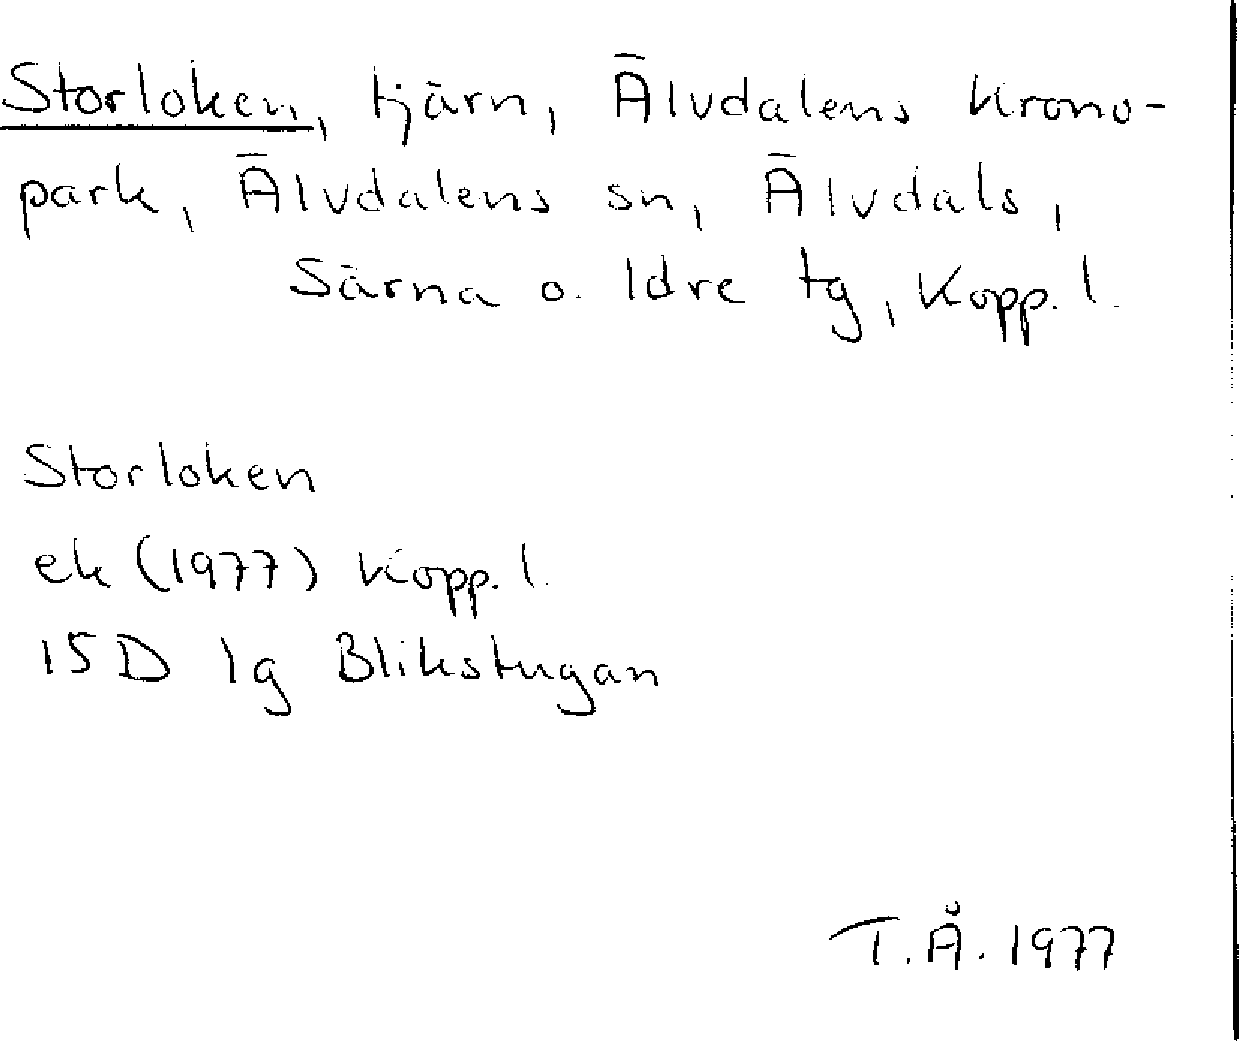 Storloken, tjärn, Älvdalens krono-
park, Älvdalens sn, Älvdals,
Särna o. Idre tg, Kopp. l.
Storloken
ek (1977) Kopp. l.
15D 1g Blikstugan
T.Å. 1977